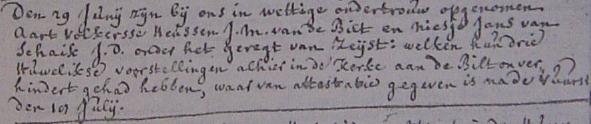 Den 29 Junij zijn bij ons in wettige ondertrouw opgenomen
Aart Volkersse Heussen J.M. van de Bilt en Niesje Jans van
Schaik J.D. onder het geregt van Zeijst: welken hun drie
Huwelikse voorstellingen alhier in de Kerke aan de Bilt onver,
hindert gehad hebben, waar van attestatie gegeven is na de Vuurst
den 19 Julij.